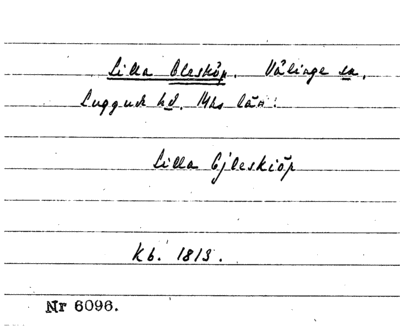 Lilla Olesköp. Välinge sn,
Luggude hd. Mhs län:
Lilla Ojleskiöp
Kb. 1813.
Nr 6096.